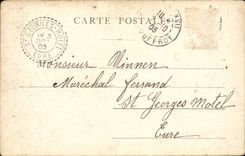 CARTE POSTALE
Monsieur Minnen
Maréchal ferrand
St Georges Motel
Eure